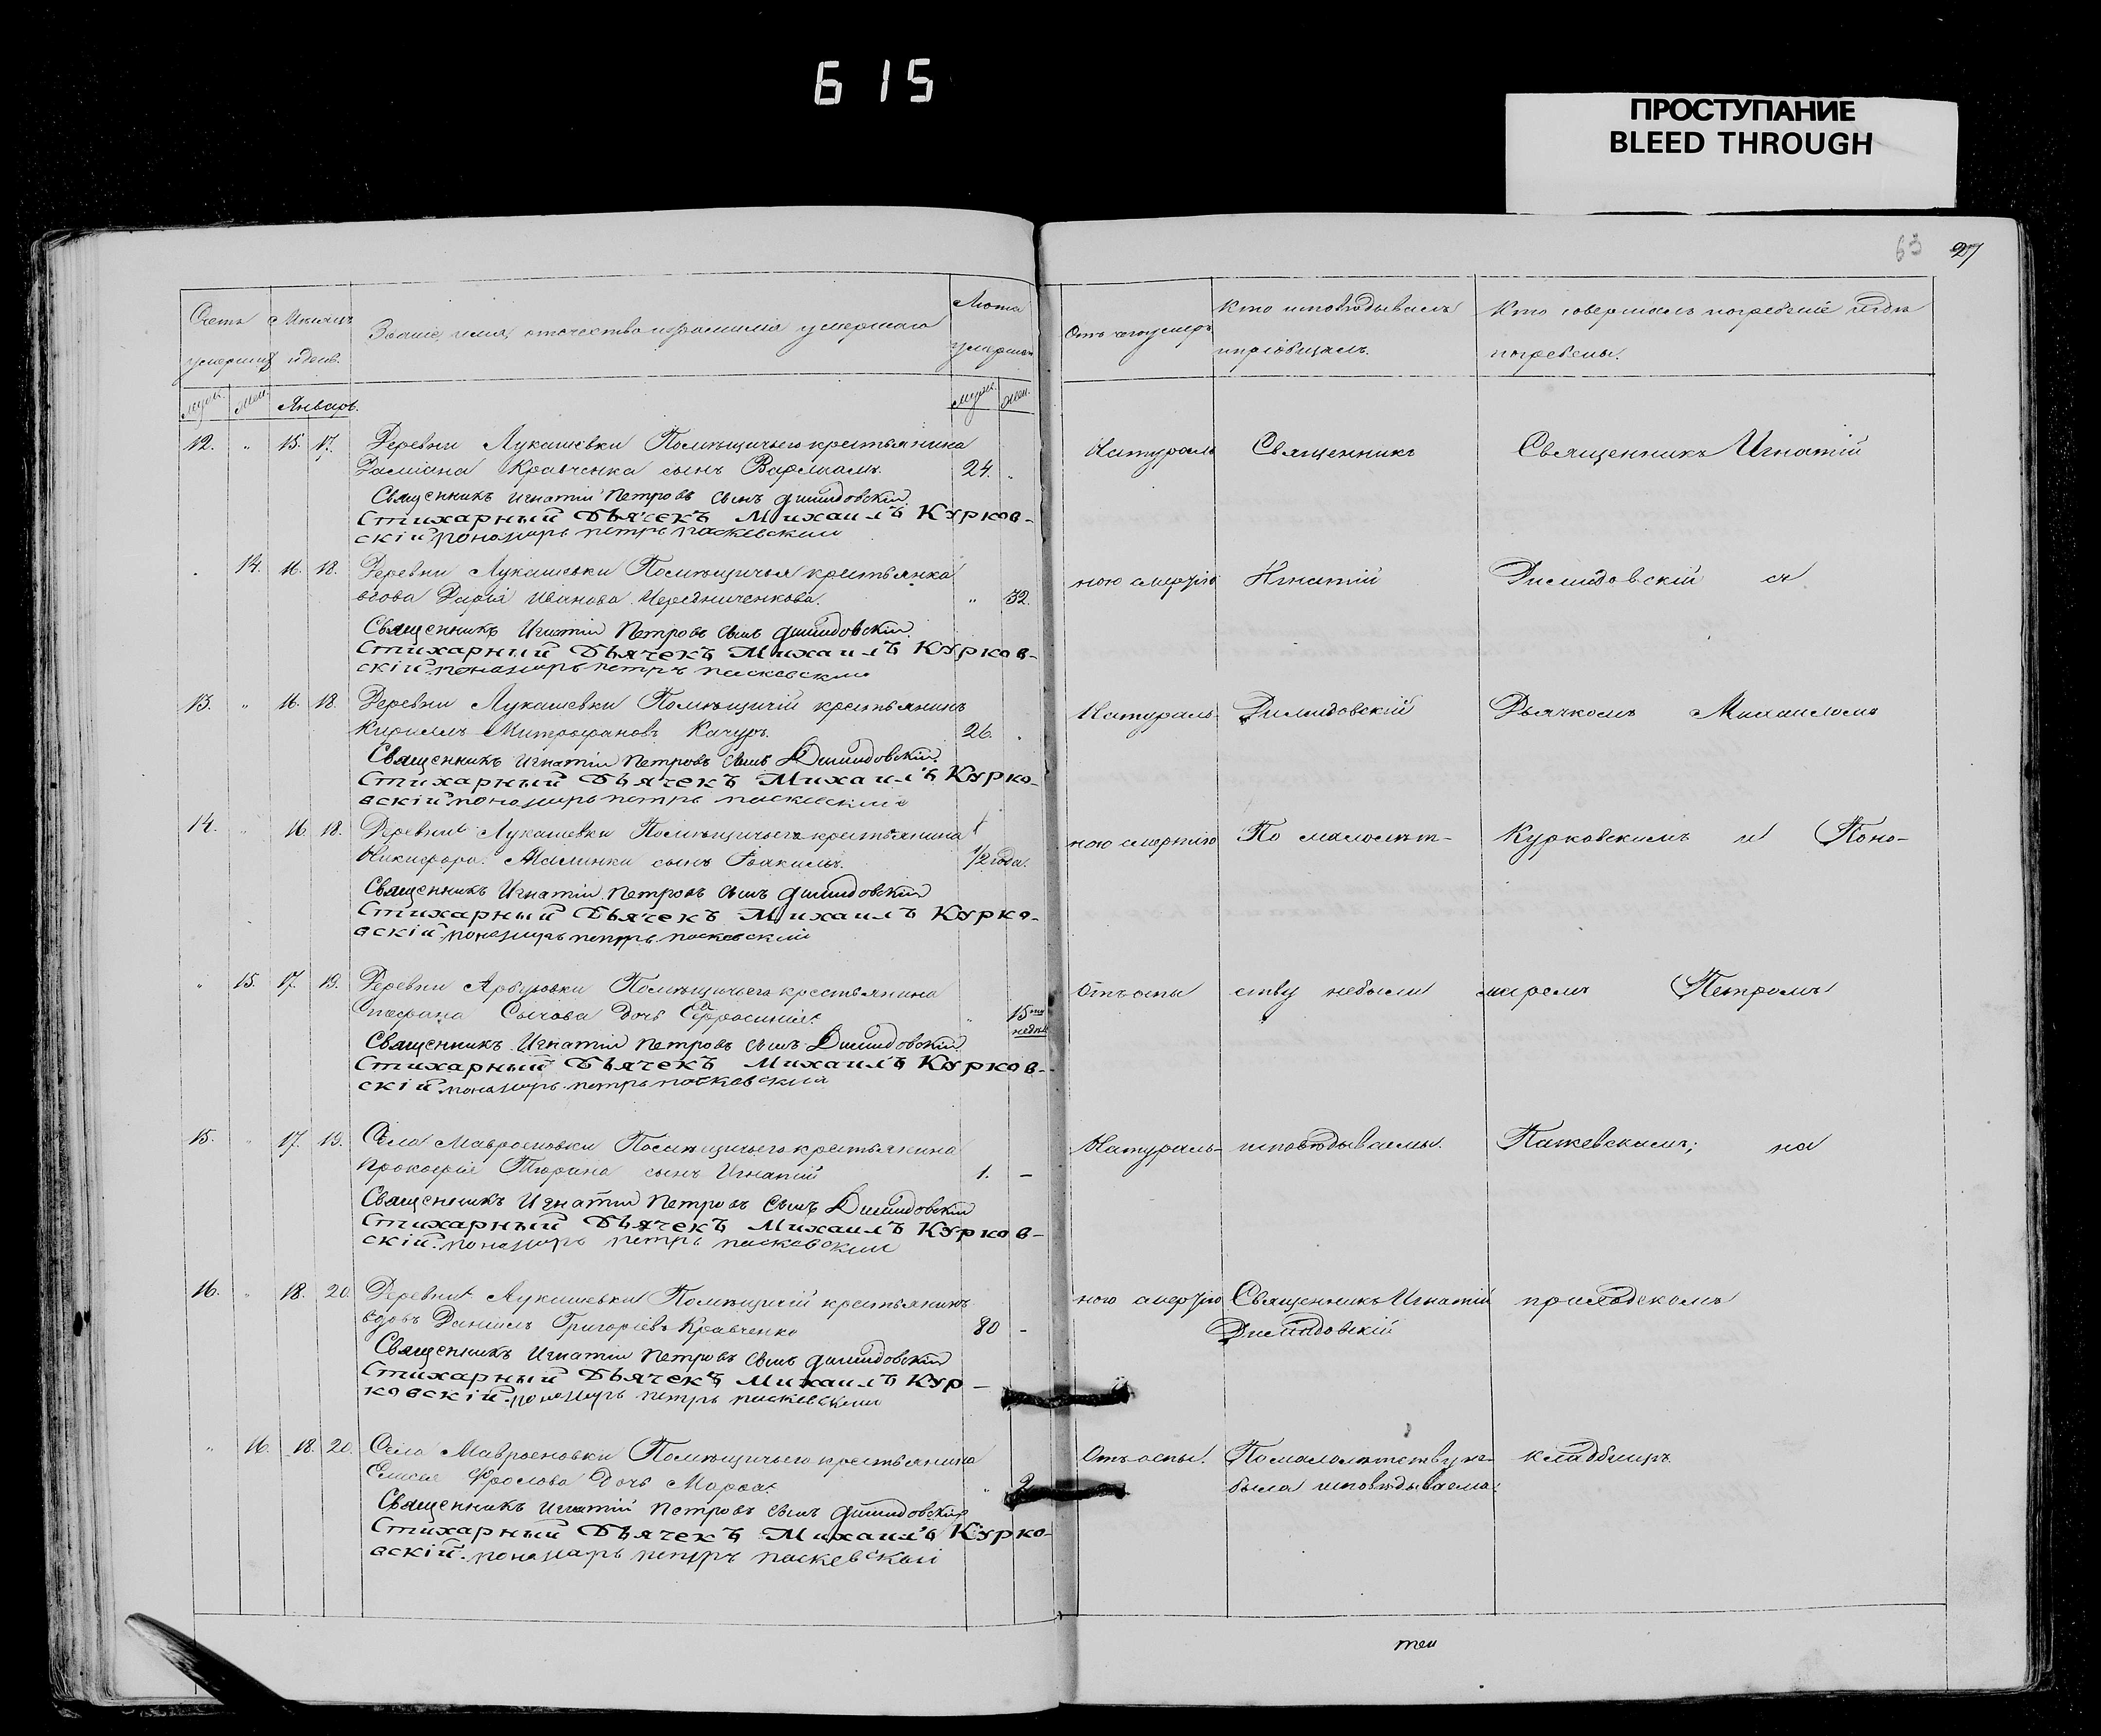 615
ПРОСТУПАНИЕ
BLEED THROUGH
63 27
Счетъ умершихъ
Мѣсяцъ и день.
Званіе, имя, отчество и фамилія умершаго
Лѣта умершаго
Отъ чего умеръ
Кто исповѣдывалъ и пріобщалъ.
Кто совершалъ погребеніе и гдѣ погребены.
муж. жен. Январь. муж. жен.
12. „ 15. 17. Деревни Лукашевки Помѣщичьего крестьянина
Даміана Кравченка сынъ Варлаамъ. 24. „
Священникъ Игнатій Петровъ сынъ Димидовскій
Стихарный Дьячекъ Михаилъ Курков-
скій пономарь петръ паскевский
14. 16. 18. Деревни Лукашевки Помѣщичья крестьянка
вдова Дарія Иванова Чередниченкова. „ 32.
Священникъ Игнатій Петровъ сынъ Димидовскій
Стихарный Дьячекъ Михаилъ Курков-
скій пономарь петръ паскевский
13. „ 16. 18. Деревни Лукашевки Помѣщичій крестьянинъ
Кириллъ Митрофановъ Качуръ. 26.
Священникъ Игнатій Петровъ сынъ Димидовскій
Стихарный Дьячекъ Михаилъ Курко-
вскій пономарь петръ паскевский
14. „ 16. 18. Деревни Лукашевки Помѣщичьего крестьянина
Никифора Малинки сынъ Іоакимъ. 1/2 года.
Священникъ Игнатій Петровъ сынъ Димидовскій
Стихарный Дьячекъ Михаилъ Курко-
вскій пономарь петръ паскевский
„ 15. 17. 19. Деревни Арбузовки Помѣщичьего крестьянина
Сычова дочь Ефросинія „ 15ти недѣль
Священникъ Игнатій Петровъ сынъ Димидовскій
Стихарный Дьячекъ Михаилъ Курков-
скій пономарь петръ паскевский
15. „ 17. 19. Села Мавроеновки Помѣщичьего крестьянина
Прокофія Тюрана сынъ Игнатій 1. –
Священникъ Игнатій Петровъ сынъ Димидовскій
Стихарный Дьячекъ Михаилъ Курков-
скій пономарь петръ паскевский
16. „ 18. 20. Деревни Лукашевки Помѣщичій крестьянинъ
вдовъ Даніилъ Григоріевъ Кравченко 80 –
Священникъ Игнатій Петровъ сынъ Димидовскій
Стихарный Дьячекъ Михаилъ Кур-
ковскій пономарь петръ паскевский
„ 16. 18. 20. Села Мавроеновки Помѣщичьего крестьянина
Елисея Фролова дочь Марфа „ 2
Священникъ Игнатій Петровъ сынъ Димидовскій
Стихарный Дьячекъ Михаилъ Курко-
вскій пономарь петръ паскевский
Натураль Священникъ Священникъ Игнатій
ною смертію Игнатій Димидовскій съ
Натураль- Димидовскій Дьячкомъ Михаиломъ
ною смертію По малолѣт- Курковскимъ и Поно-
Отъ оспы ству небыли маремъ Петромъ
Натураль- исповѣдываемы. Пашкевскимъ; на
ною смертію Священникъ Игнатій приходскомъ
Димидовскій
Отъ оспы. По малолѣтству не кладбищѣ
была исповѣдываема.
теи